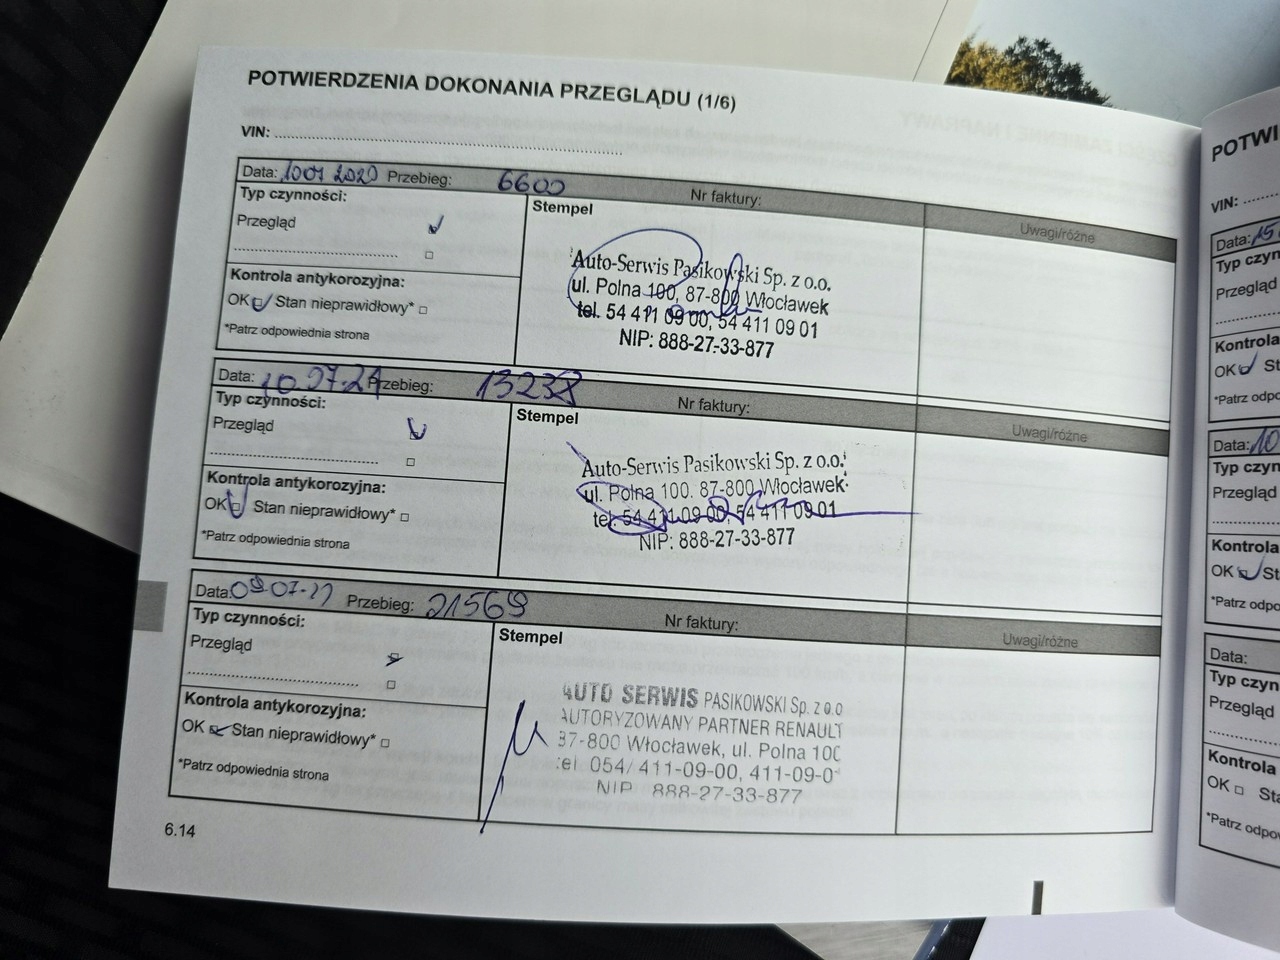 POTWIERDZENIA DOKONANIA PRZEGLĄDU (1/6)
VIN:
Data: 1007 2020 Przebieg: 6600 Nr faktury:
Typ czynności:
Stempel
Uwagi/różne
Przegląd
Kontrola antykorozyjna:
OK Stan nieprawidłowy*
*Patrz odpowiednia strona
Auto-Serwis Pasikowski Sp. z o.o.
ul. Polna 100, 87-800 Włocławek
tel. 54 411 09 00, 54 411 09 01
NIP: 888-27-33-877
Data: 10.07.21 Przebieg: 13238 Nr faktury:
Typ czynności:
Stempel
Uwagi/różne
Przegląd
Kontrola antykorozyjna:
OK Stan nieprawidłowy*
*Patrz odpowiednia strona
Auto-Serwis Pasikowski Sp. z o.o.
ul. Polna 100. 87-800 Włocławek
tel. 54 411 09 00, 54 411 09 01
NIP: 888-27-33-877
Data: Przebieg: 21569 Nr faktury:
Typ czynności:
Stempel
Uwagi/różne
Przegląd
Kontrola antykorozyjna:
OK Stan nieprawidłowy*
*Patrz odpowiednia strona
AUTO SERWIS PASIKOWSKI Sp. z o.o
AUTORYZOWANY PARTNER RENAULT
87-800 Włocławek, ul. Polna 100
tel 054/ 411-09-00, 411-09-0
NIP 888-27-33-877
6.14
POTWI
VIN:
Data: 15
Typ czyn
Przegląd
Kontrola
OK St
*Patrz odpo
Data: 10
Typ czyn
Przegląd
Kontrola
OK St
*Patrz odpo
Data:
Typ czyn
Przegląd
Kontrola
OK Sta
*Patrz odpo